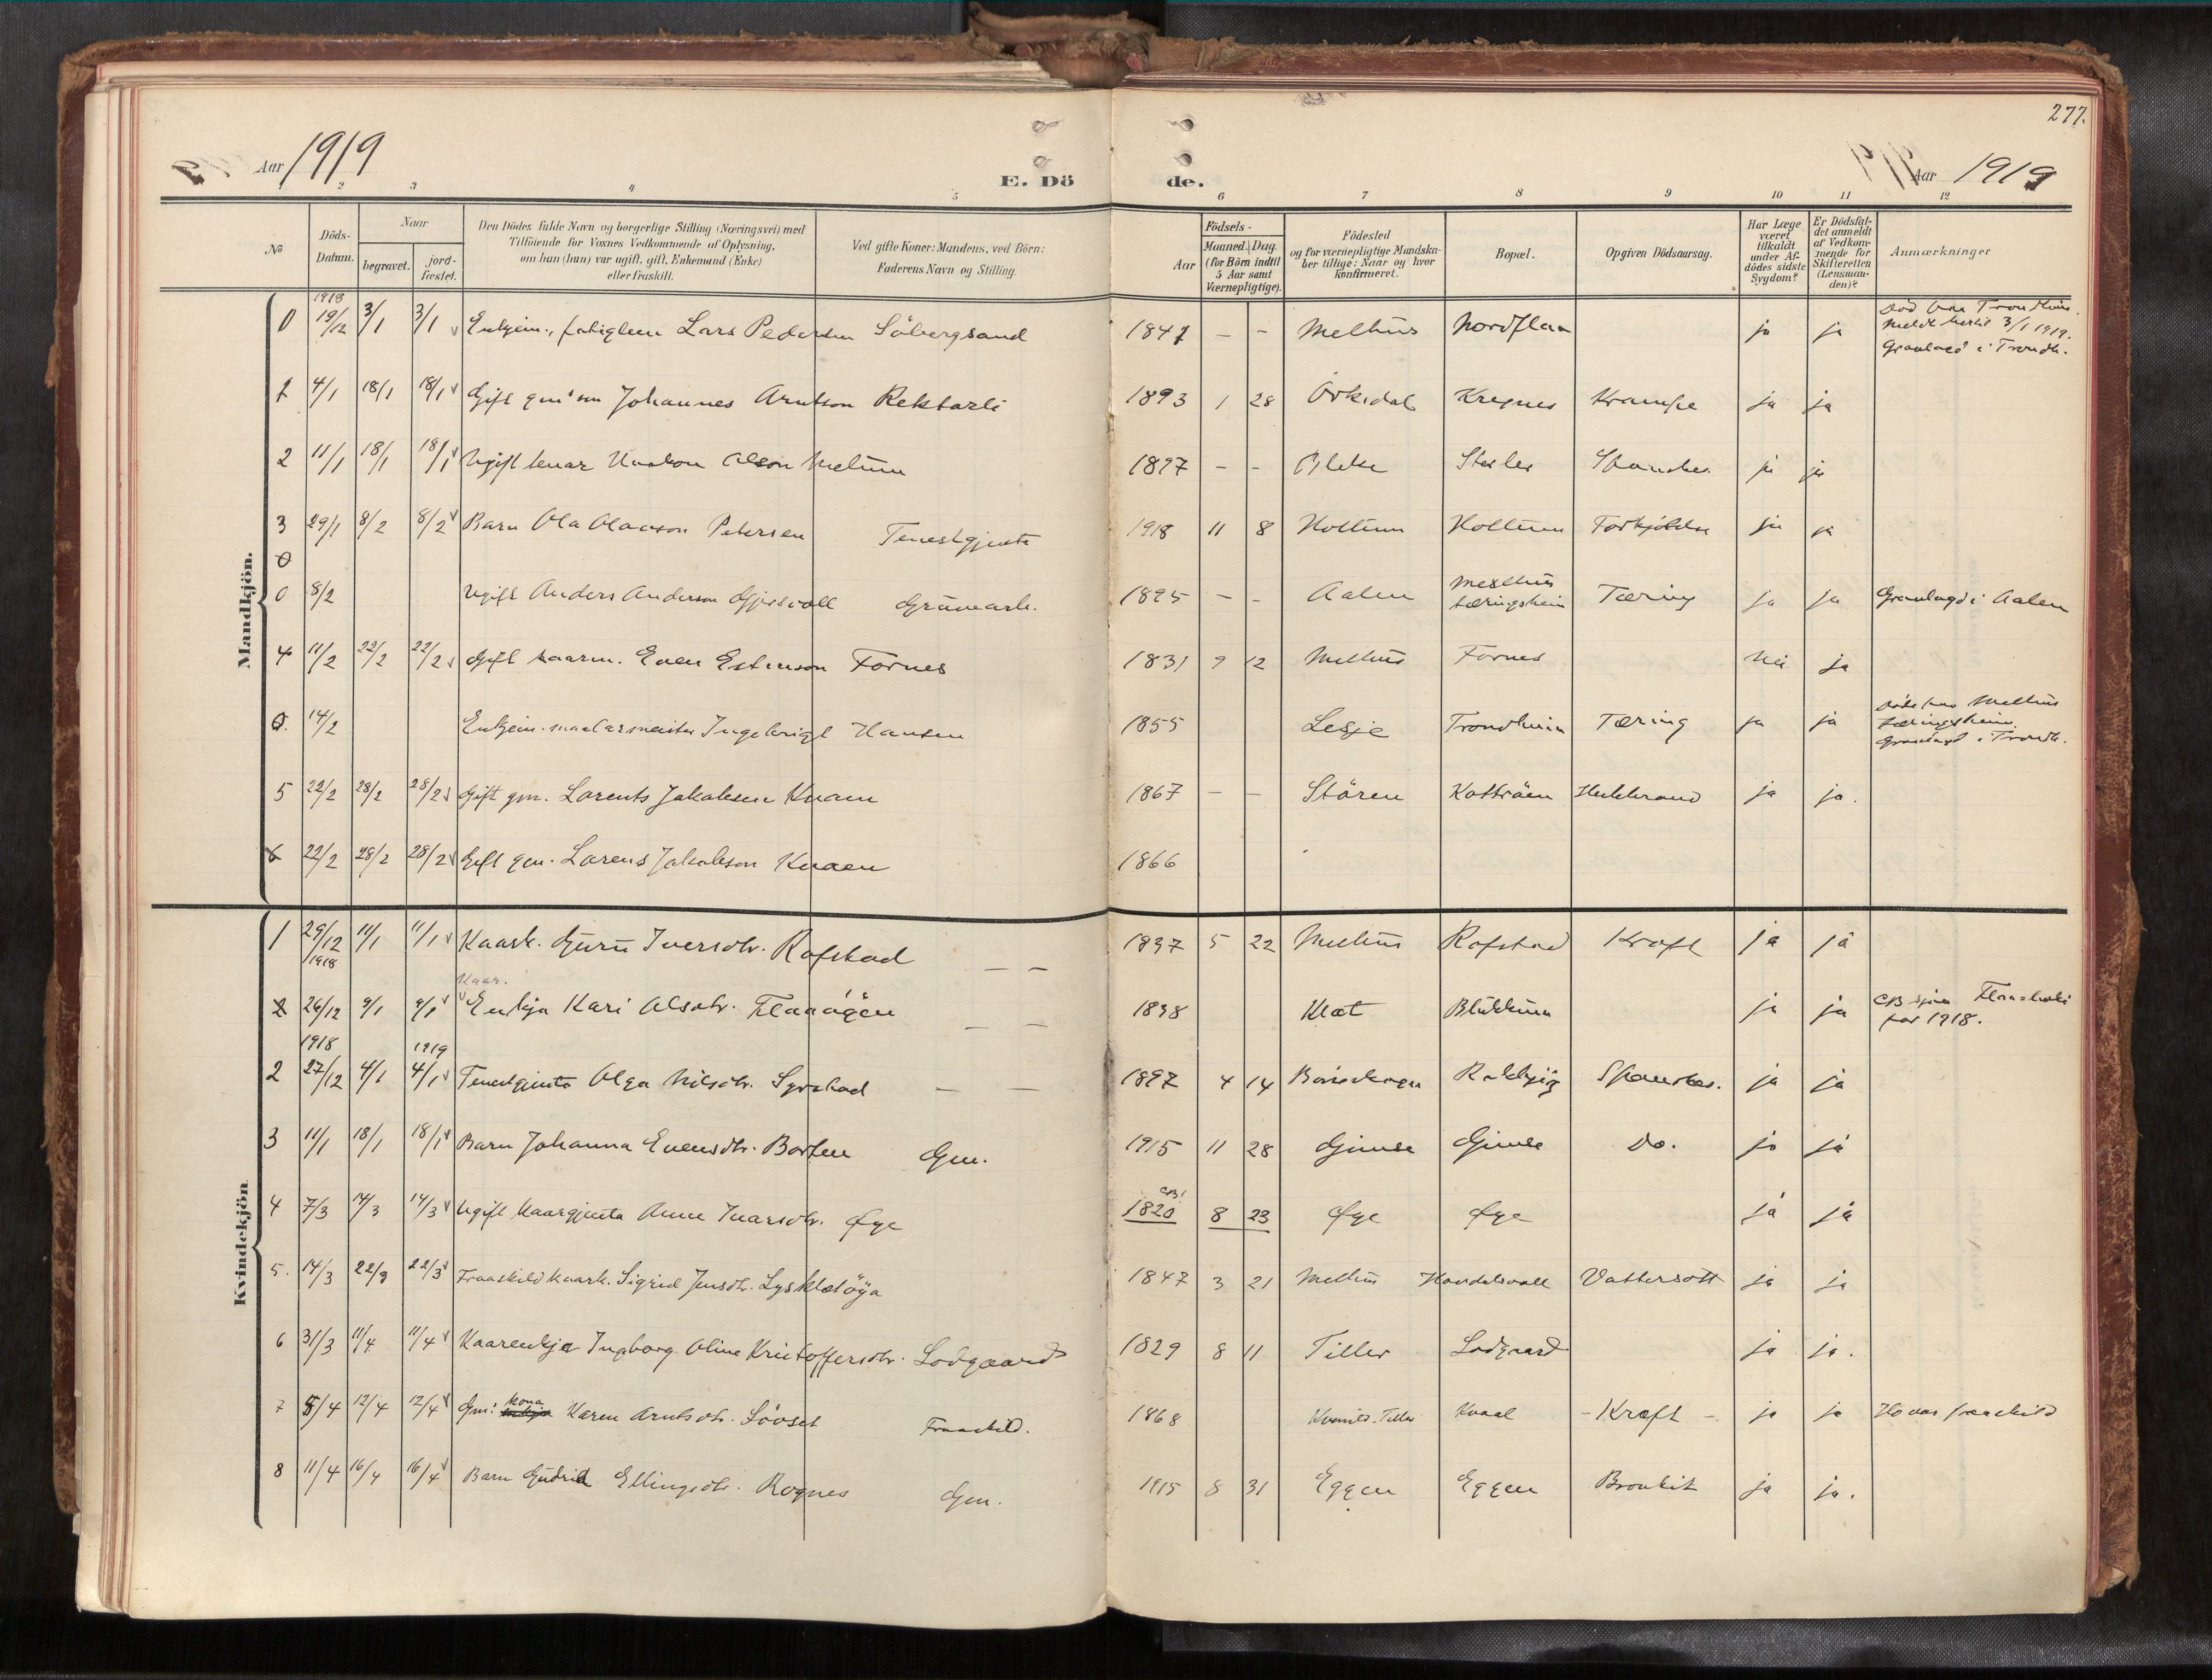 277.
Aar 1919
E. Döde.
Aar 1919
1 2 3 4 5 6 7 8 9 10 11 12
No
Döds-Datum.
Naar
begravet.
jord-fæstet.
Den Dödes fulde Navn og borgerlige Stilling (Næringsvei) med
Tilföiende for Voxnes Vedkommende af Oplysning,
om han (hun) var ugift, gift, Enkemand (Enke)
eller fraskilt.
Ved gifte Koner: Mandens, ved Börn:
Faderens Navn og Stilling.
Födsels-
Aar
Maaned. Dag.
(for Börn indtil
5 Aar samt
Værnepligtige).
Födested
og for værnepligtige Mandska-
ber tillige: Naar og hvor
konfirmeret.
Bopæl.
Opgiven Dödsaarsag.
Har Læge
været
tilkaldt
under Af-
dödes sidste
Sygdom?
Er Dödsfal-
det anmeldt
af Vedkom-
mende for
Skifteretten
(Lensman-
den)?
Anmærkninger
Mandkjön.
0 1918 19/12 3/1 3/1 Lars Pedersen Söbergsand 1847 - - Melhus Nordflaa ja ja Trondheim. 3/1 1919. Gravlagd i Trondh.
1 4/1 18/1 18/1 Gift Johannes Arntson Rektarli 1893 1 28 Orkedal Kregnes Krampe ja ja
2 11/1 18/1 18/1 Ugift tenar Haakon Olson Melum 1897 - - Spanske ja ja
3 29/1 8/2 8/2 Barn Ola Olavson Petersen Tenestgjenta 1918 11 8 Hollum Hollum Forkjölelse ja ja
0
0 8/2 Ugift Anders Anderson Gjersvoll Gruvearb. 1895 - - Aalen Melhus tæringsheim Tæring ja ja Gravlagd i Aalen
4 11/2 22/2 22/2 Gift kaarm. Even Estenson Fornes 1831 9 12 Melhus Fornes Nei ja
0. 14/2 Enkjem. maalarmeister Ingebrigt Hansen 1855 Lesje Trondheim Tæring ja ja Melhus tæringsheim. Gravlagd i Trondh.
5 22/2 28/2 28/2 Gift gm. Lorents Jakobsen Kvaen 1867 - - Stören Kattraen ja ja.
6 22/2 28/2 28/2 Gift gm. Lorens Jakobson Kvaen 1866
Kvindekjön
1 29/12 1918 11/1 11/1 Kaark. Guru Iversdtr. Rofstad - - 1837 5 22 Melhus Rofstad Kræft ja ja
Kaar.
2 26/12 9/1 9/1 Enkja Kari Olsdtr. Flaaöyen - - 1838 Klæt Blekkum ja ja for 1918.
1918 1919
2 27/12 4/1 4/1 Tenestgjenta Olga Nilsdtr. Syrstad - - 1897 4 14 Spanskes. ja ja
3 11/1 18/1 18/1 Barn Johanna Evensdtr. Borten Gm. 1915 11 28 Gimse Gimse Do. ja ja
4 7/3 14/3 14/3 Ugift kaargjenta Anne Ivarsdtr. Øye 1820 8 23 Øye Øye ja ja
5. 14/3 22/3 22/3 Fraaskild kaark. Sigrid Jensdtr. Lysklætöya 1847 3 21 Melhus Hovdalsvoll Vattersott ja ja
6 31/3 11/4 11/4 Kaarenkja Ingborg Oline Kristoffersdtr. Lodgaard 1829 8 11 Tiller Lodgaard ja ja.
7 5/4 12/4 12/4 Gm: kona Karen Arntsdtr. Lövset Fraaskild. 1868 Tiller Kvaal - Kræft - ja ja Ho var fraaskild
8 11/4 16/4 16/4 Barn Gudrid Ellingsdtr. Rognes Gm. 1915 8 31 Eggen Eggen Bronkit ja ja.